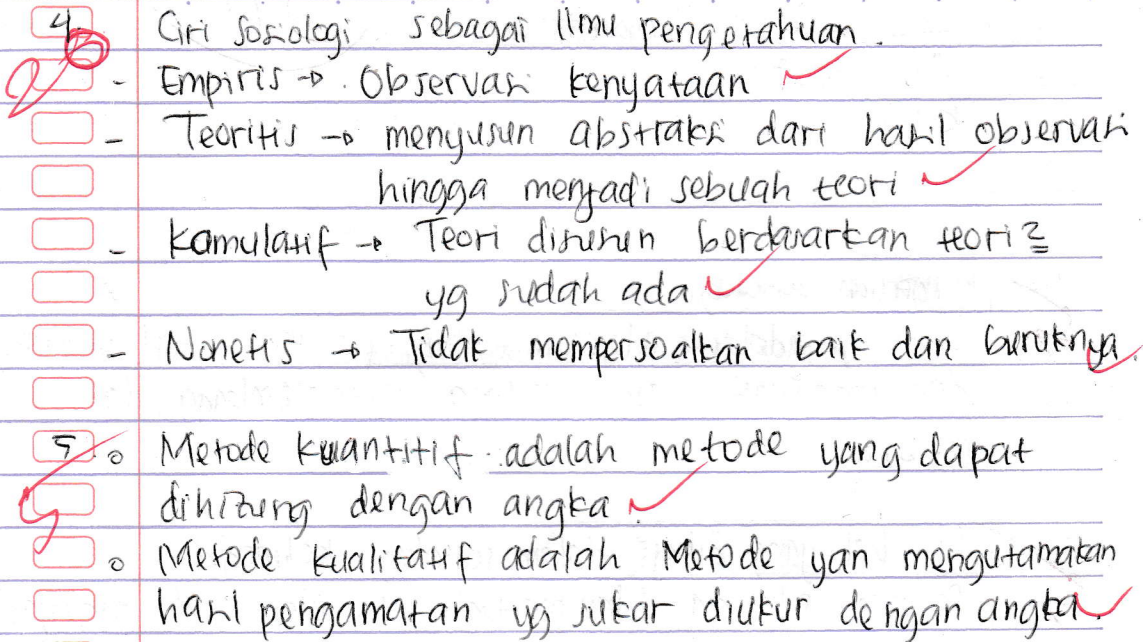 4. Ciri Sosiologi sebagai Ilmu pengetahuan.
- Empiris → Observasi kenyataan
- Teoritis → menyusun abstraksi dari hasil observasi
hingga menjadi sebuah teori
- Kamulatif → Teori disusun berdasarkan teori2
yg sudah ada
- Nonetis → Tidak mempersoalkan baik dan buruknya.
5. o Metode kuantitif adalah metode yang dapat
dihitung dengan angka.
o Metode kualitatif adalah Metode yan mengutamakan
hasil pengamatan yg sukar diukur dengan angka.